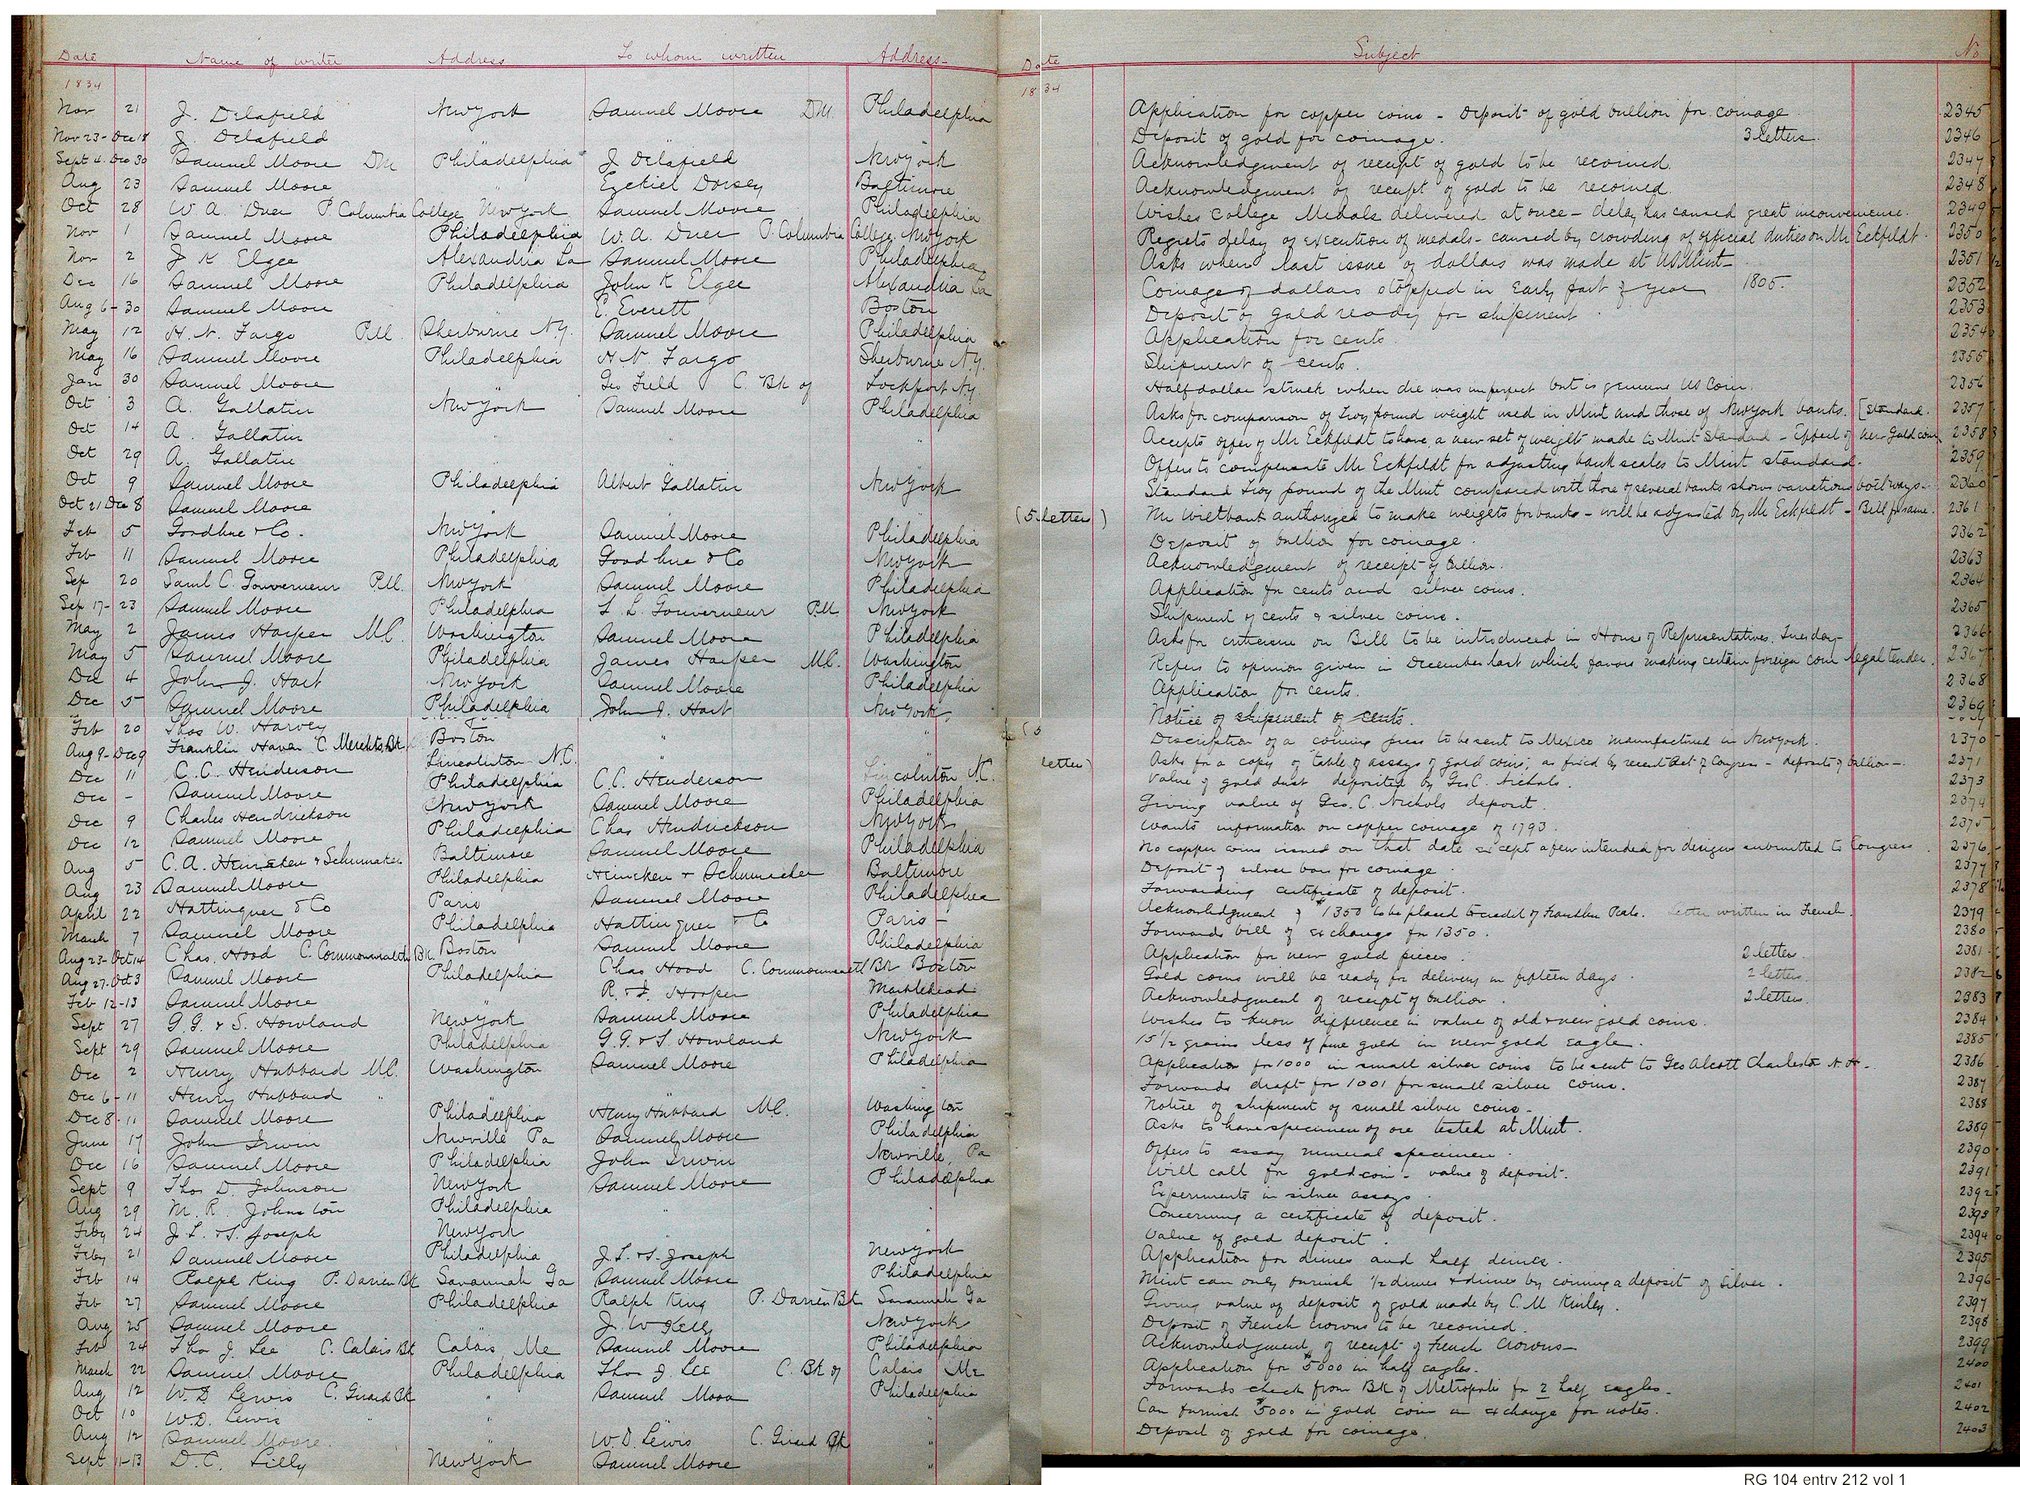 Date Name of writer Address To whom written Address Date Subject No
1834 1834
Nov 21 J. Delafield New York Samuel Moore DM Philadelphia Application for copper coins - Deposit of gold bullion for coinage 2345
Nov 23 - Dec 18 J Delafield Deposit of gold for coinage. 3 letters 2346
Sept 4 - Dec 30 Samuel Moore DM Philadelphia J Delafield New York Acknowledgment of receipt of gold to be recoined. 2347
Aug 23 Samuel Moore " Ezekiel Dorsey Baltimore Acknowledgment of receipt of gold to be recoined. 2348
Oct 28 W A. Duer P Columbia College New York Samuel Moore Philadelphia Wishes College Medals delivered at once - delay has caused great inconvenience. 2349
Nov 1 Samuel Moore Philadelphia W. A. Duer P. Columbia College New York Regrets delay of execution of medals - caused by crowding of official duties on Mr Eckfeldt. 2350
Nov 2 J K Elgee Alexandria La Samuel Moore Philadelphia Asks when last issue of dollars was made at US Mint 2351
Dec 16 Samuel Moore Philadelphia John K Elgee Alexandria La Coinage of dollars stopped in early part of year 1805. 2352
Aug 6 - 30 Samuel Moore " E. Everett Boston Deposit of gold ready for shipment. 2353
May 12 H. N. Fargo P.M. Sherburne N.Y. Samuel Moore Philadelphia Application for cents. 2354
May 16 Samuel Moore Philadelphia H N Fargo Sherburne N.Y. Shipment of cents. 2355
Jan 30 Samuel Moore " Geo Field C. Bk of Lockport N.Y. Half dollar struck when die was imperfect but is genuine US Coin. 2356
Oct 3 A. Gallatin New York Samuel Moore Philadelphia Asks for comparison of Troy pound weight used in Mint and those of New York banks. [Standard. 2357
Oct 14 A. Gallatin " " " Accepts offer of Mr Eckfeldt to have a new set of weights made to Mint Standard - Effect of new gold coin 2358
Oct 29 A. Gallatin Offers to compensate Mr Eckfeldt for adjusting bank scales to Mint standard. 2359
Oct 9 Samuel Moore Philadelphia Albert Gallatin New York Standard Troy pound of the Mint compared with those of several banks shows variations both ways. 2360
Oct 21 Dec 8 Samuel Moore (5 letters) Mr Wiltbank authorized to make weights for banks - will be adjusted by Mr Eckfeldt - Bill for same. 2361
Feb 5 Goodhue & Co. New York Samuel Moore Philadelphia Deposit of bullion for coinage. 2362
Feb 11 Samuel Moore Philadelphia Goodhue & Co New York Acknowledgment of receipt of bullion. 2363
Sep 20 Saml C. Gouverneur P.M. New York Samuel Moore Philadelphia Application for cents and silver coins. 2364
Sep 17 - 23 Samuel Moore Philadelphia S L Gouverneur PM New York Shipment of cents & silver coins. 2365
May 2 James Harper M.C. Washington Samuel Moore Philadelphia Asks for criticism on Bill to be introduced in House of Representatives. Tuesday 2366
May 5 Samuel Moore Philadelphia James Harper M.C. Washington Refers to opinion given in December last which favors making certain foreign coin legal tender. 2367
Dec 4 John J. Hart New York Samuel Moore Philadelphia Application for cents. 2368
Dec 5 Samuel Moore Philadelphia John J. Hart New York Notice of shipment of cents. 2369
Feb 20 Thos W. Harvey " " Description of a coining press to be sent to Mexico manufactured in New York. 2370
Aug 9 - Dec 9 Franklin Haven C. Merchts Bk Boston (5 letters) Asks for a copy of table of assays of gold coins, as fixed by recent act of Congress - deposits of bullion - 2371
Dec 11 C. C. Henderson Lincolnton N.C. Value of gold dust deposited by Geo C. Nichols. 2373
Dec - Samuel Moore Philadelphia C. C. Henderson Lincolnton N.C. Giving value of Geo. C. Nichols deposit. 2374
Dec 9 Charles Hendrickson New York Samuel Moore Philadelphia Wants information on copper coinage of 1793. 2375
Dec 12 Samuel Moore Philadelphia Chas Hendrickson New York No copper coins issued on that date except a few intended for designs submitted to Congress. 2376
Aug 5 C. A. Heineken & Schumacher Baltimore Samuel Moore Philadelphia Deposit of silver bars for coinage. 2377
Aug 23 Samuel Moore Philadelphia Heineken & Schumacher Baltimore Forwarding certificate of deposit. 2378
April 22 Hottinguer & Co Paris Samuel Moore Philadelphia Acknowledgment of $1350 to be placed to credit of Franklin Peale. Letter written in French. 2379
March 7 Samuel Moore Philadelphia Hottinguer & Co Paris Forwards bill of exchange for 1350. 2380
Aug 23 - Oct 14 Chas. Hood C. Commonwealth Bk. Boston Samuel Moore Philadelphia Application for new gold pieces. 2 letters. 2381
Aug 27 - Oct 3 Samuel Moore Philadelphia Chas Hood C. Commonwealth Bk Boston Gold coins will be ready for delivery in fifteen days. 2 letters 2382
Feb 12 - 13 Samuel Moore " R. & J. Hooper Marblehead Acknowledgment of receipt of bullion. 2 letters. 2383
Sept 27 G. G. & S. Howland New York Samuel Moore Philadelphia Wishes to know difference in value of old & new gold coins. 2384
Sept 29 Samuel Moore Philadelphia G. G. & S. Howland New York 15 1/2 grains less of pure gold in new gold eagle. 2385
Dec 2 Henry Hubbard M.C. Washington Samuel Moore Philadelphia Application for 1000 in small silver coins to be sent to Geo Alcott Charleston N.H. 2386
Dec 6 - 11 Henry Hubbard " " Forwards draft for 1001 for small silver coins. 2387
Dec 8 - 11 Samuel Moore Philadelphia Henry Hubbard M.C. Washington Notice of shipment of small silver coins. 2388
June 17 John Irwin Newville Pa Samuel Moore Philadelphia Asks to have specimen of ore tested at Mint. 2389
Dec 16 Samuel Moore Philadelphia John Irwin Newville Pa Offers to assay mineral specimen. 2390
Sept 9 Thos D. Johnson New York Samuel Moore Philadelphia Will call for gold coin - value of deposit. 2391
Aug 29 M. R. Johnston Philadelphia " " Experiments in silver assays. 2392
Feby 24 J. L. & S. Joseph New York " " Concerning a certificate of deposit. 2393
Feby 21 Samuel Moore Philadelphia J. L. & S. Joseph New York Value of gold deposit. 2394
Feb 14 Ralph King P. Darien Bk Savannah Ga Samuel Moore Philadelphia Application for dimes and half dimes. 2395
Feb 27 Samuel Moore Philadelphia Ralph King P. Darien Bk Savannah Ga Mint can only furnish 1/2 dimes & dimes by coining a deposit of silver. 2396
Aug 25 Samuel Moore " J. W Kelly New York Giving value of deposit of gold made by C. M Kinley. 2397
Feb 24 Tho J. Lee C. Calais Bk Calais Me Samuel Moore Philadelphia Deposit of French crowns to be recoined. 2398
March 22 Samuel Moore Philadelphia Tho J Lee C. Bk of Calais Me Acknowledgment of receipt of French Crowns 2399
Aug 12 W. D Lewis C. Girard Bk " Samuel Moore Philadelphia Application for $5000 in half eagles. 2400
Oct 10 W. D. Lewis " " Forwards check from Bk of Metropolis for 2 half eagles. 2401
Aug 12 Samuel Moore. " W. D. Lewis C. Girard Bk " Can furnish $5000 in gold coin in exchange for notes. 2402
Sept 11-13 D. C. Lilly New York Samuel Moore " Deposit of gold for coinage. 2403
RG 104 entry 212 vol 1